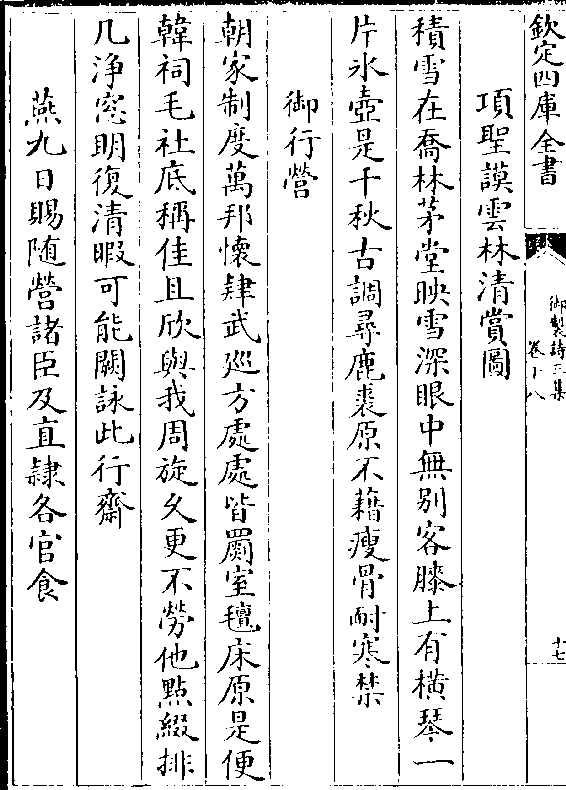 欽定四庫全書
御製詩三集
卷十八
十七
項聖謨雲林清賞圖
積雪在喬林茅堂映雪深眼中無别客膝上有橫琴一
片氷壺是千秋古調尋鹿裘原不藉瘦骨耐寒禁
御行營
朝家制度萬邦懷肄武廵方處處皆罽室氊床原是便
韓祠毛社底稱佳且欣與我周旋久更不勞他點綴排
几浄窓明復清暇可能闕詠此行齋
燕九日賜随營諸臣及直隷各官食